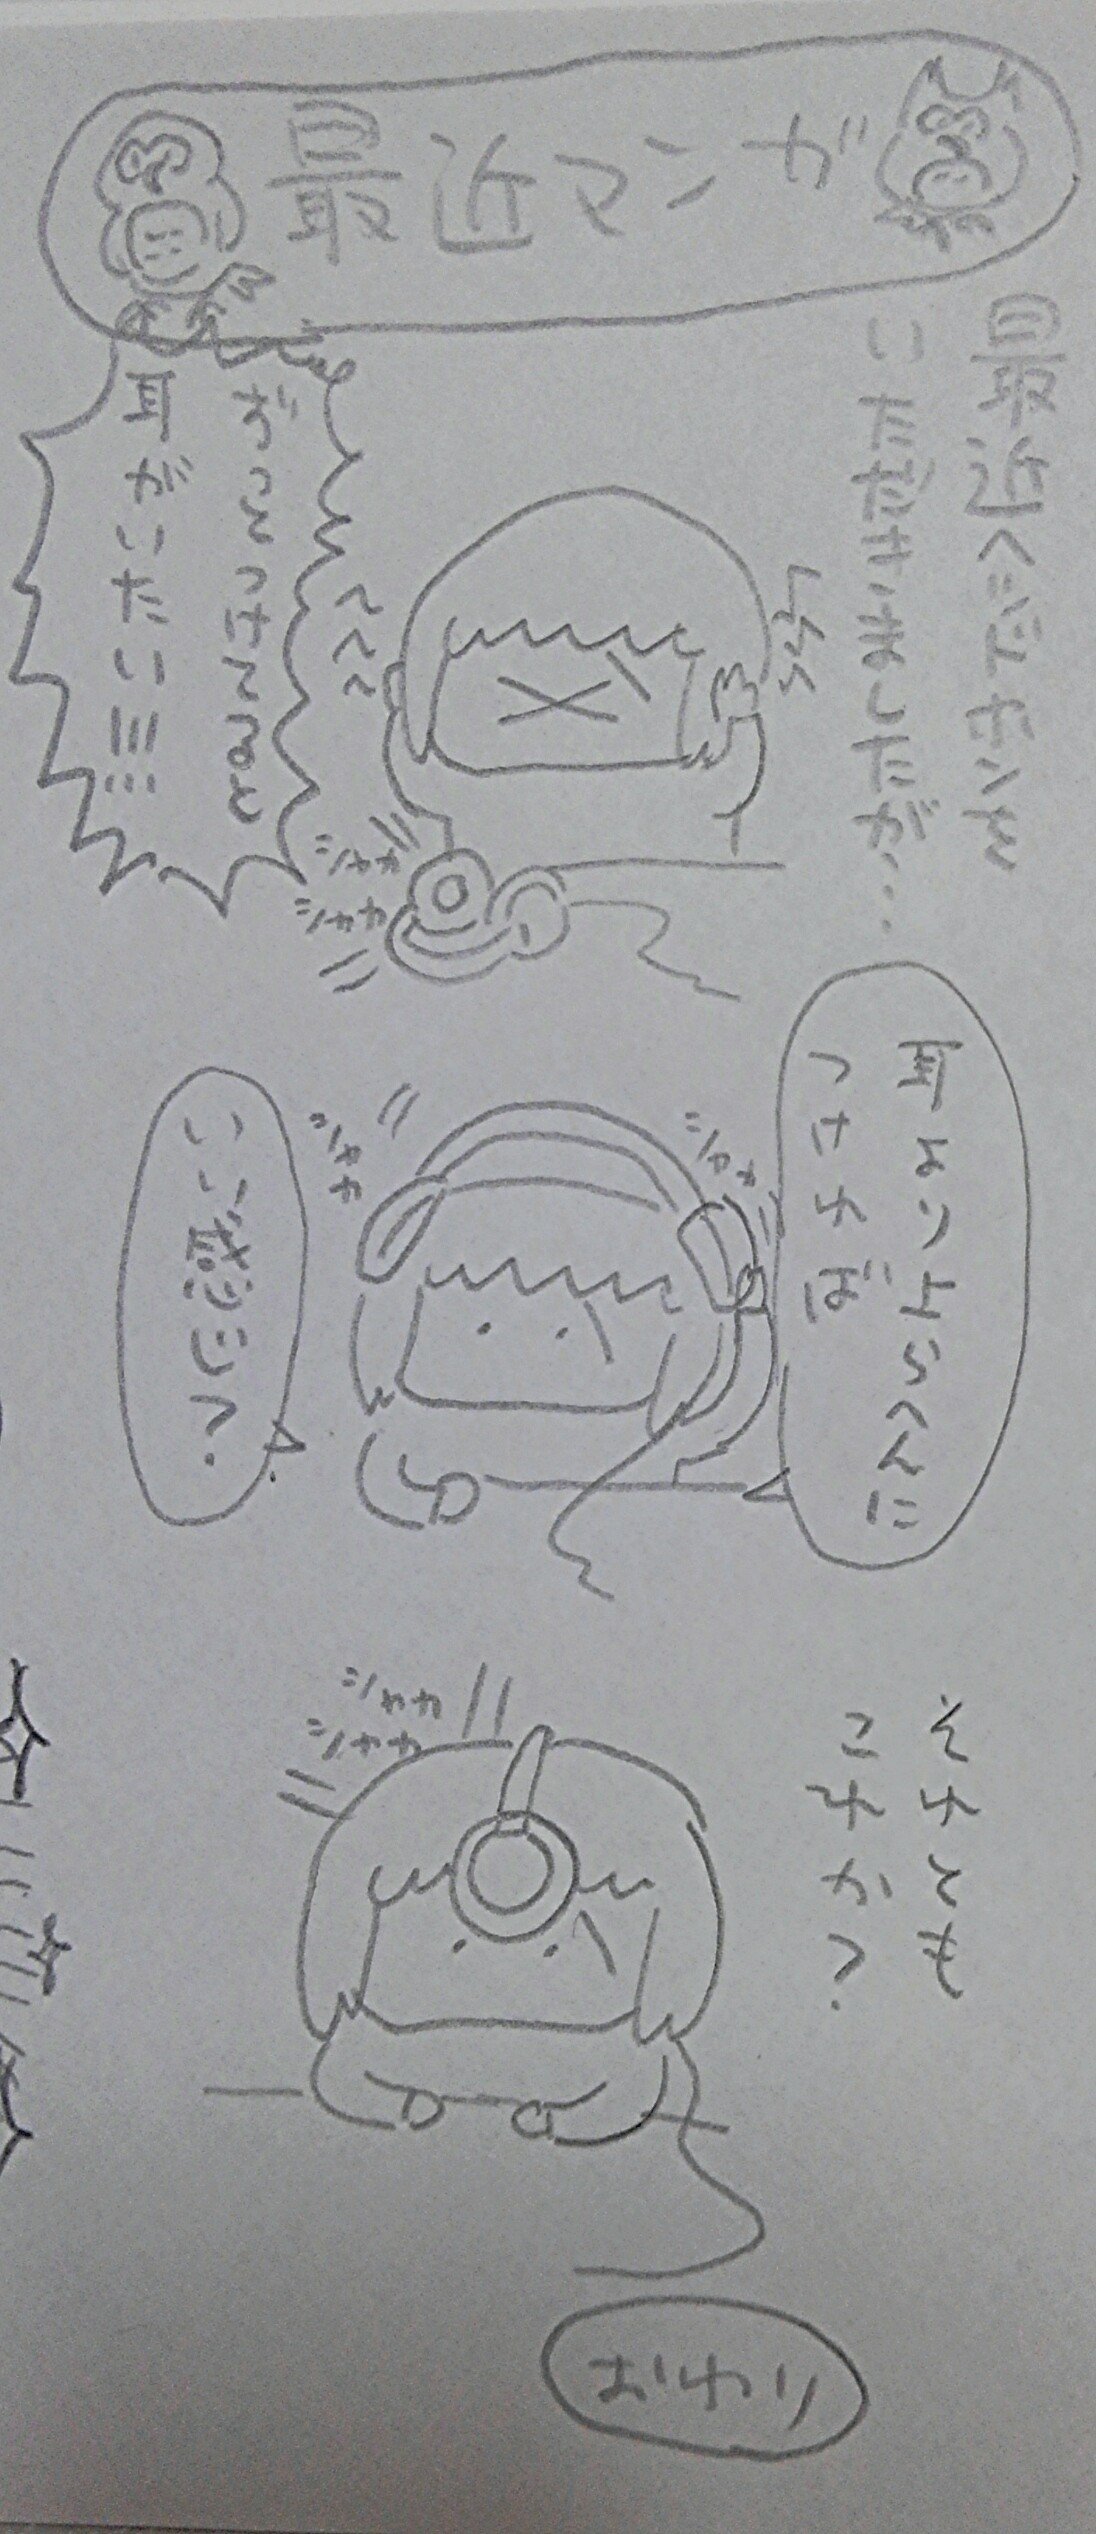 最近マンガ
最近ヘッドホンを
いただきましたが…
ずっとつけてると
耳がいたい!!!
シャカ
シャカ
耳よりナナメ上に
つければ
いい感じに?
シャカ
シャカ
それとも
これか?
シャカ
シャカ
おわり